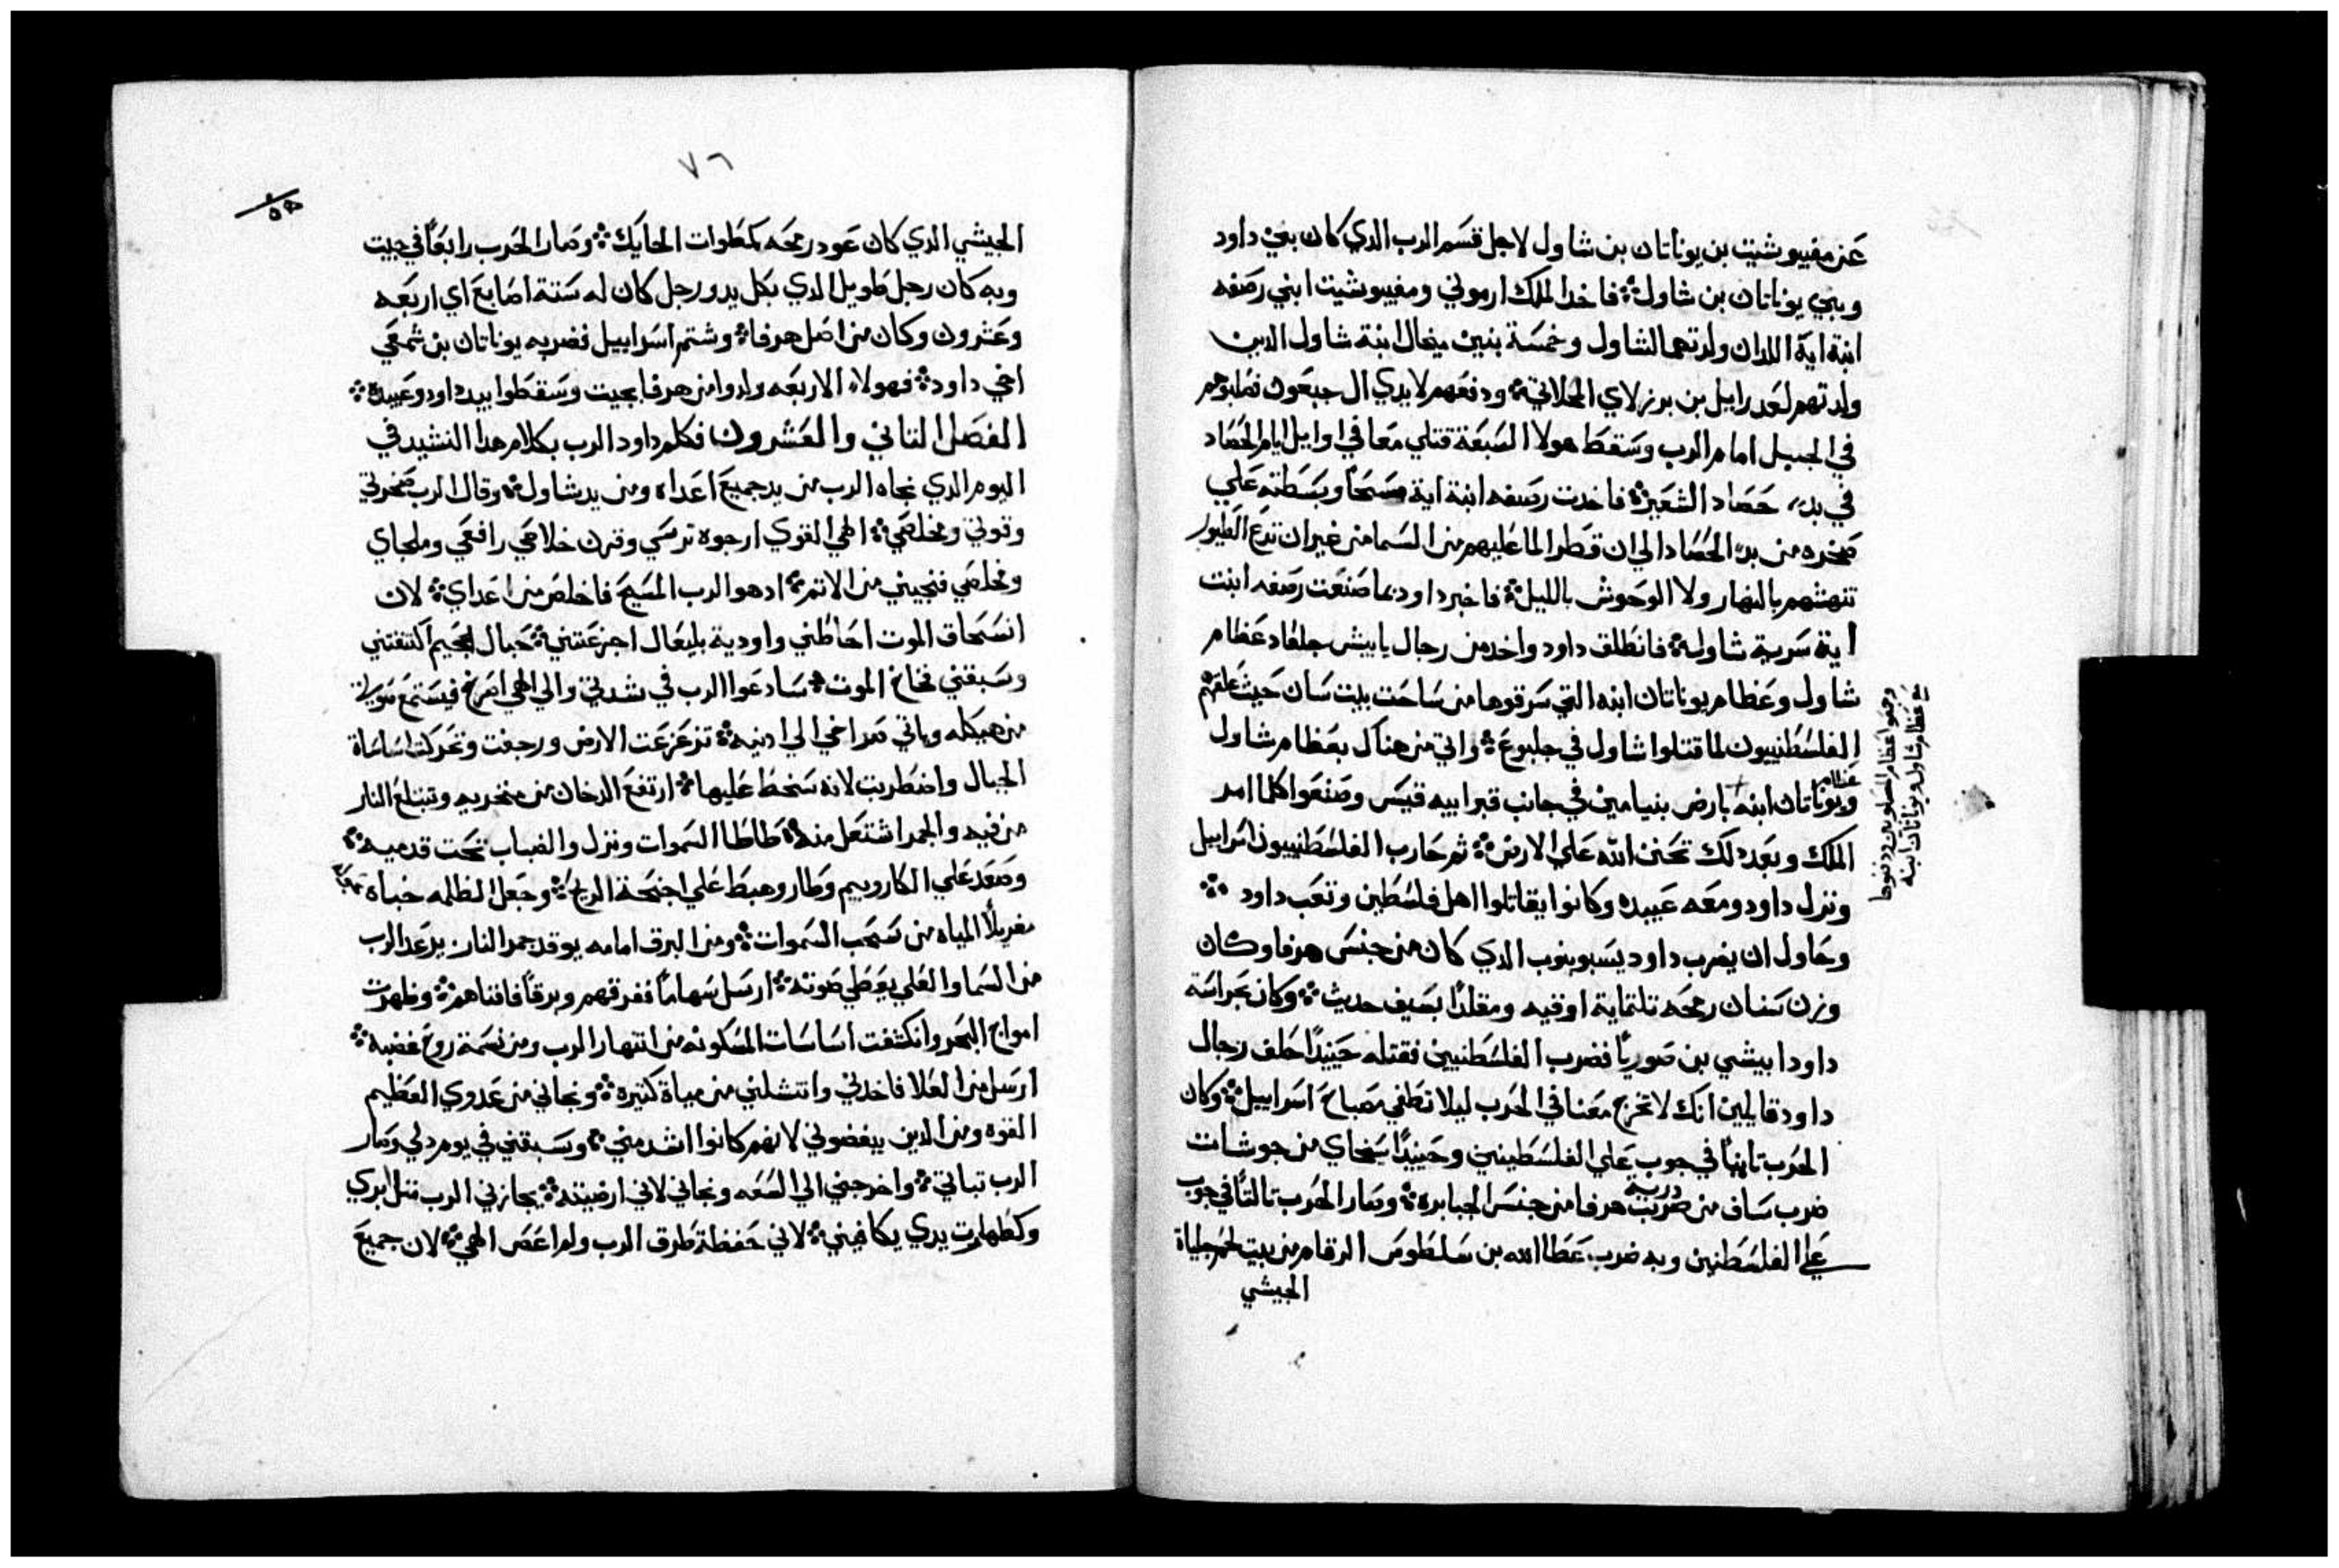 عن مفيبوشيت بن يوناتان بن شاول لاجل قسم الرب الدي كان بين داود
وبين يوناتان بن شاول فاخد الملك ارموني ومفيبوشيت ابني رصفه
ابنة اية اللدان ولدتهما لشاول وخمسة بنين ميخال ابنة شاول الدين
ولدتهم لعدرايل بن برزلاي المحلاتي ودفعهم لايدي ال جبعون فصلبوهم
في الجبل امام الرب وسقط هولا السبعة قتلي معا في اوايل ايام الحصاد
في بدء حصاد الشعير فاخدت رصفه ابنة اية مسحا وبسطته علي
صخره من بدء الحصاد الي ان قطر الما عليهم من السما من غير ان تدع الطيور
تنهشهم بالنهار ولا الوحوش بالليل فاخبر داود بما صنعت رصفه ابنت
اية سرية شاول فانطلق داود واخد من رجال يابيش جلعاد عظام
شاول وعظام يوناتان ابنه التي سرقوها من ساحت بيت سان حيث علقهم
الفلسطنييون لما قتلوا شاول في جلبوع واتي من هناك بعظام شاول
وعظام يوناتان ابنه بارض بنيامين في جانب قبر ابيه قيس وصنعوا كلما امر
وجمعوا عظام المصلوبين ودفنوها
مع عظام شاول ويوناتان ابنه
الملك وبعد دلك تحنن الله علي الارض ثم حارب الفلسطنييون اسراييل
ونزل داود ومعه عبيده وكانوا يقاتلوا اهل فلسطين وتعب داود
وحاول ان يضرب داود يسبوبنوب الدي كان من جنس هرفا وكان
وزن سنان رمحه تلتماية اوقيه ومقلدا بسيف حديث وكان بحراسة
داود ابيشي بن صوريا فضرب الفلسطنيين فقتله حينيدا حلف رجال
داود قايلين انك لا تخرج معنا في الحرب ليلا تطفي مصباح اسراييل وكان
الحرب تانيا في جوب علي الفلسطينين وحينيدا سبخاي من جوشات
ضرب ساف من درية هرفا من جنس الجبابره وصار الحرب تالتا في جوب
علي الفلسطنين وبه ضرب عطا الله بن سلطوس الرقام من بيت لحم جلياة
الجيشي
٧٦
الجيشي الدي كان عود رمحه كمطوات الحايك وصار الحرب رابعا في جيت
وبه كان رجل طويل الدي بكل يد ورجل كان له ستة اصابع اي اربعه
وعشرون وكان من اصل هرفا وشتم اسراييل فضربه يوناتان بن شمعي
اخي داود فهولاء الاربعه ولدوا من هرفا بجيت وسقطوا بيد داود وعبيده
الفصل التاني والعشرون فكلم داود الرب بكلام هدا النشيد في
اليوم الدي نجاه الرب من يد جميع اعداه ومن يد شاول وقال الرب صخرتي
وقوتي ومخلصي الهي القوي ارجوه ترسي وقرن خلاصي رافعي وملجاي
ومخلصي فنجيني من الاتم ادهو الرب المسيح فاخلص من اعداي لان
انسحاق الموت احاطني واودية بليعال اجزعتني حبال الجحيم اكتنفتني
وسبقني فخاخ الموت سادعوا الرب في شدتي والي الهي اصرخ فيستمع صوتي
من هيكله وياتي صراخي الي ادنيه تزعزعت الارض ورجفت وتحركت اساساة
الجبال واضطربت لانه سخط عليها ارتفع الدخان من منخريه وتبتلع النار
من فيه والجمر اشتعل منه طاطا السموات ونزل والضباب تحت قدميه
وصعد علي الكاروبيم وطار وهبط علي اجنحة الريح وجعل الظلمه خباة
مغربلا المياه من سحب السموات ومن البرق امامه يوقد جمر النار يرعد الرب
من السما والعلي يعطي صوته ارسل سهاما ففرقهم وبرقا فافناهم وظهرت
امواج البحر وانكشفت اساسات المسكونه من انتهار الرب ومن نسمة روح غضبه
ارسل من العلا فاخدني وانتشلني من مياة كتيره ونجاني من عدوي العظيم
القوه ومن الدين يبغضوني لانهم كانوا اشد مني وسبقني في يوم دلي وصار
الرب تباتي واخرجني الي السعه ونجاني لاني ارضيته يجازني الرب متل بري
وكطهارت يدي يكافيني لاني حفظة طرق الرب ولم اعص الهي لان جميع